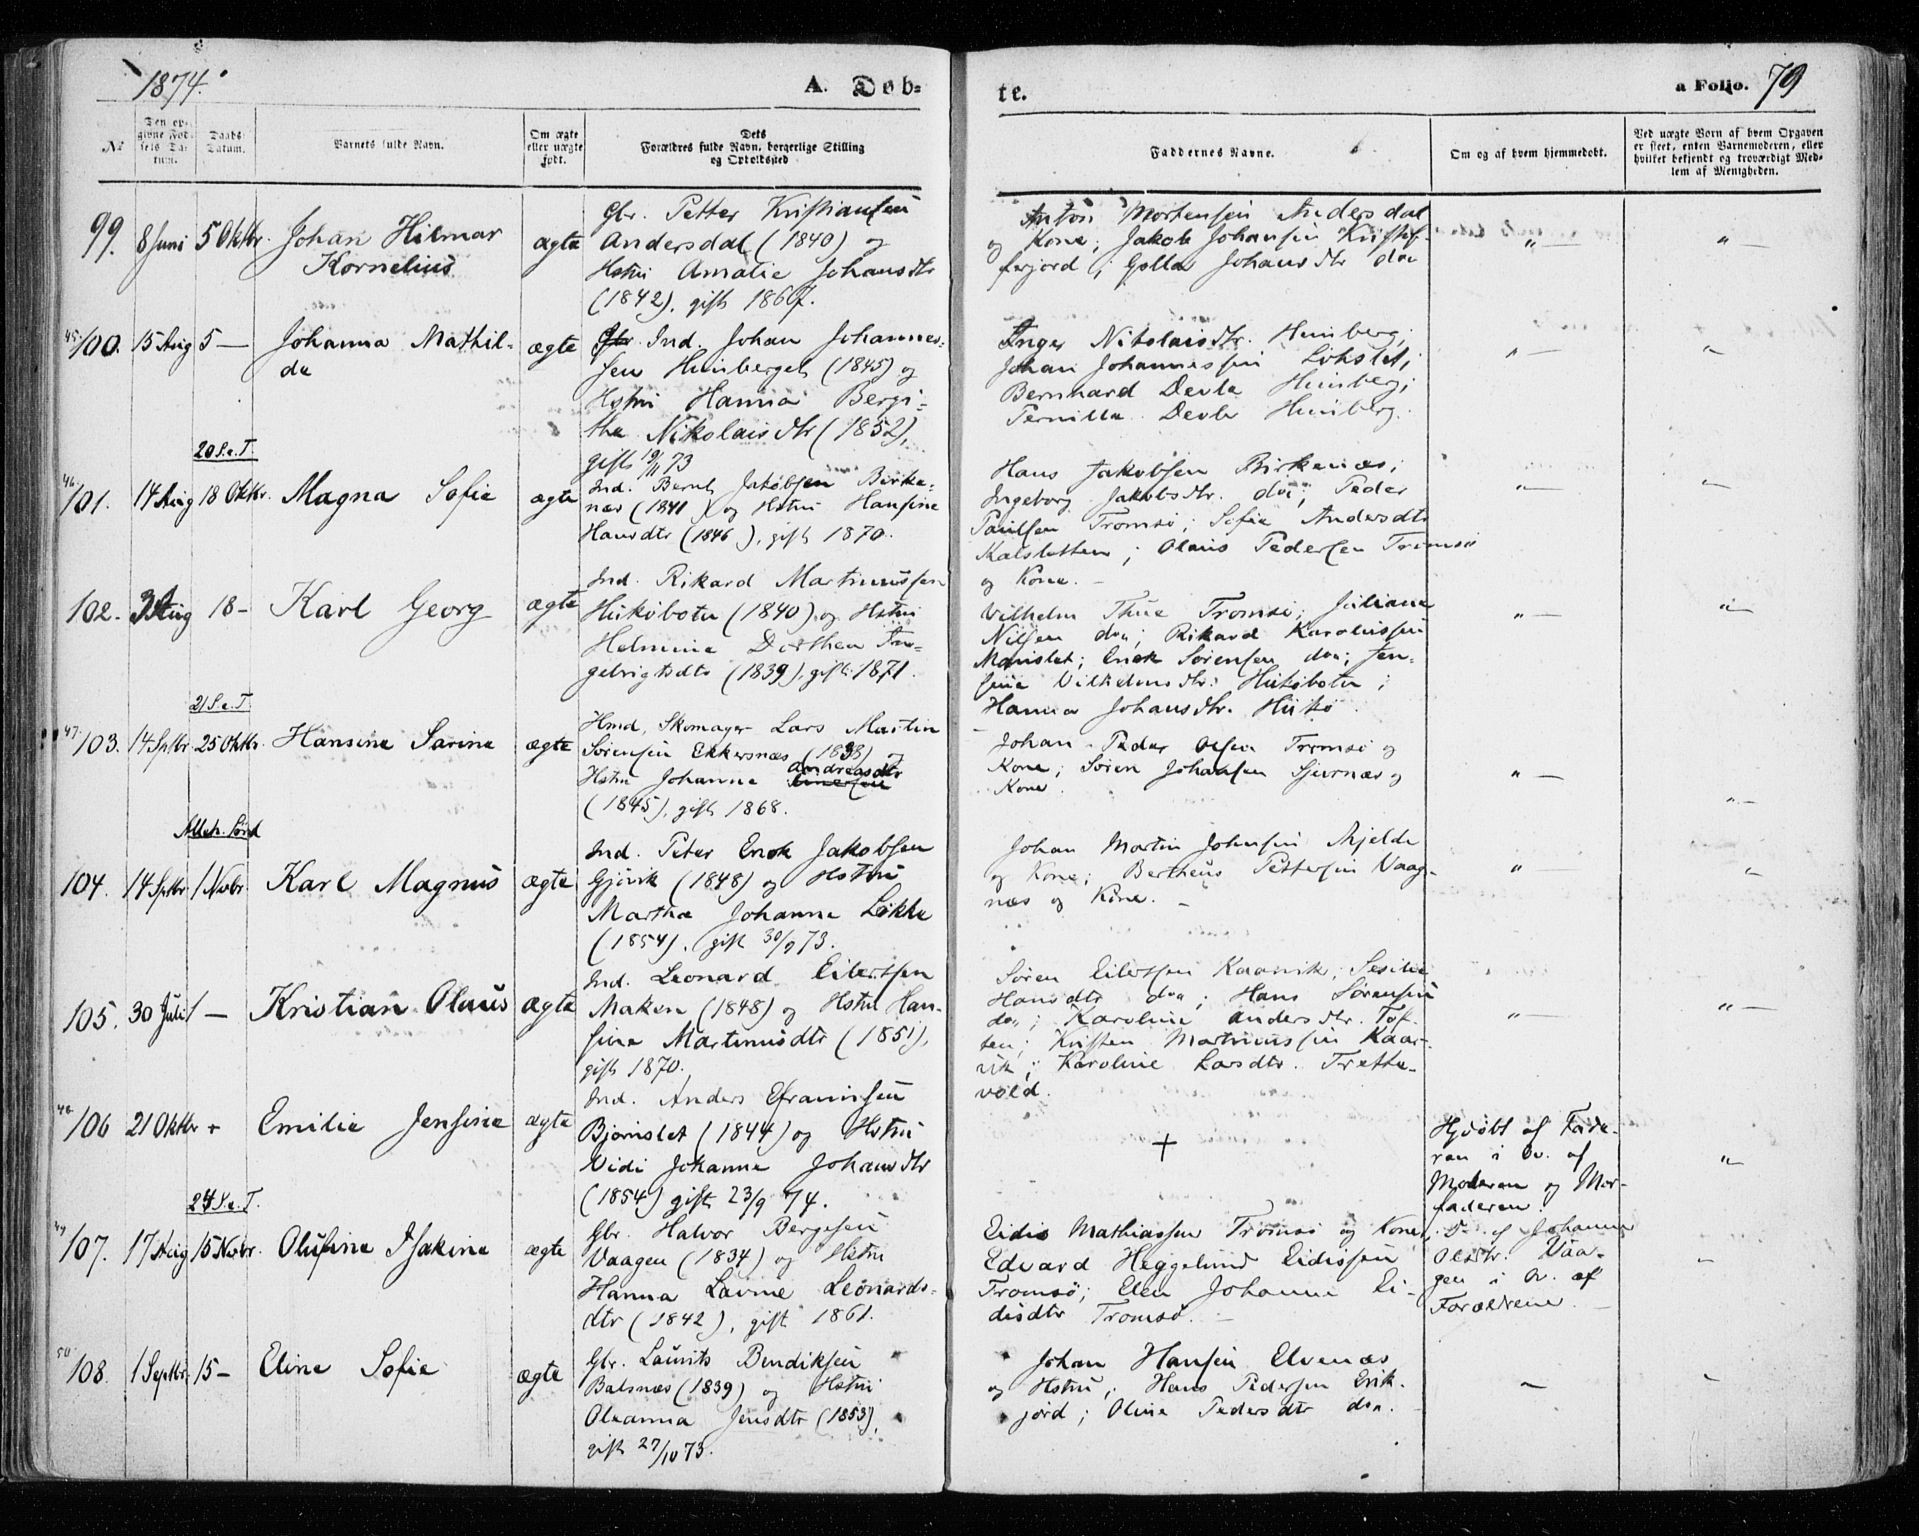 1874.
A. Døb-
te.
a Folio. 79
№
Den op-
givne Fød-
sels Da-
tum.
Daabs
Datum.
Barnets fulde Navn.
Om ægte
eller uægte
født.
Dets
Forældres fulde Navn, borgerlige Stilling
og Opholdssted
Faddernes Navne.
Om og af hvem hjemmedøbt.
Ved uægte Børn af hvem Opgaven
er skeet, enten Barnemoderen, eller
hvilket bekjendt og troværdigt Med-
lem af Menigheden.
99. 8 Juni 5 Oktbr. Johan Hilmar
Kornelius
ægte
Gbr. Petter Kristiansen
Andersdal (1840) og
Hstru Amalie Johansdtr
(1842), gift 1867.
Anton Mortensen Andersdal
og Kone; Jakob Johansen Kristof-
ferjord; Golla Johansdtr do
" — " —
45. 100. 15 Aug 5 — Johanna Mathil-
da
ægte
Gbr. Ind. Johan Johannes-
sen Heinberget (1845) og
Hstru Hanna Bergi-
the Nikolaisdtr (1852),
gift 19/11 73
Inger Nikolaisdtr. Heinberg;
Johan Johannessen Lokslet;
Bernhard Devle Heinberg;
Pernilla Devle Heinberg.
20 S. e. T.
46. 101. 14 Aug 18 Oktbr. Magna Sofie
ægte
Ind. Bernt Jakobsen Birke-
næs (1841) og Hstru Hansine
Hansdtr (1846), gift 1870.
Hans Jakobsen Birkenæs;
Ingeborg Jakobsdtr. do; Peder
Paulsen Tromsø; Sofie Andersdtr
Kalsletten; Olaus Pedersen Tromsø
og Kone. —
102. 3 Aug 18 — Karl Georg
ægte
Ind. Rikard Martinussen
Hukøbotn (1840) og Hstru
Helmine Dorthea In-
gebrigtsdtr (1839), gift 1871.
Vilhelm Thue Tromsø; Juliane
Nilsen do; Rikard Karolussen
Manslet; Enok Sørensen do; Jen-
sine Vilhelmsdtr. Hukøbotn;
Hanna Johansdtr. Hukø.
21 S. e. T.
47. 103. 14 Sptbr 25 Oktbr. Hansine Sarine
ægte
Hmd, Skomager Lars Martin
Sørensen Ekkersnæs (1838) og
Hstru Johanne Andreasdtr
(1845), gift 1868.
Johan Peder Olsen Tromsø og
Kone; Søren Johansen Sjursnæs og
Kone.
Alleh. Sønd
104. 14 Sptbr 1 Novbr. Karl Magnus
ægte
Ind. Peter Enok Jakobsen
Gjøvik (1848) og Hstru
Martha Johanne Løkke
(1854), gift 30/9 73.
Johan Martin Johnsen Mjelde
og Kone; Bertheus Pettersen Vaag-
næs og Kone. —
105. 30 Juli 1 — Kristian Olaus
ægte
Ind. Leonard Eilertsen
Maken (1848) og Hstru Han-
sine Martinusdtr (1851),
gift 1870.
Søren Eilertsen Kaarvik; Sesilie
Hansdtr do; Hans Sørensen
do; Karoline Andersdtr. Tof-
ten; Kristen Martinussen Kaar-
vik; Karoline Larsdtr. Trette-
vold.
48. 106 21 Oktbr + Emilie Jensine
ægte
Ind. Anders Eframsen
Bjørnslet (1844) og Hstru
Vidi Johanne Johansdtr
(1854) gift 23/9 74.
+
Hjdøbt af Fade-
ren i Ov. af
Moderen og Mor-
faderen.
24 S. e. T.
49 107. 17 Aug 15 Novbr. Olufine Isakine
ægte
Gbr. Halvor Bergesen
Vaagen (1834) og Hstru
Hanna Lavine Leonards-
dtr (1842), gift 1861.
Eidis Mathiassen Tromsø og Kone;
Edvard Heggelund Eidissen
Tromsø; Elen Johanne Ei-
disdtr Tromsø. —
D. af Johanna
Olsdtr. Vaa-
gen i Ov. af
Forældrene. —
50 108. 1 Septbr. 15 — Eline Sofie
ægte
Gbr. Laurits Bendiksen
Balsnæs (1839) og Hstru
Oleanna Jensdtr (1853),
gift 27/10 73.
Johan Hansen Elvenæs
og Hstru; Hans Pedersen Erik-
jord; Oline Pedersdtr do.